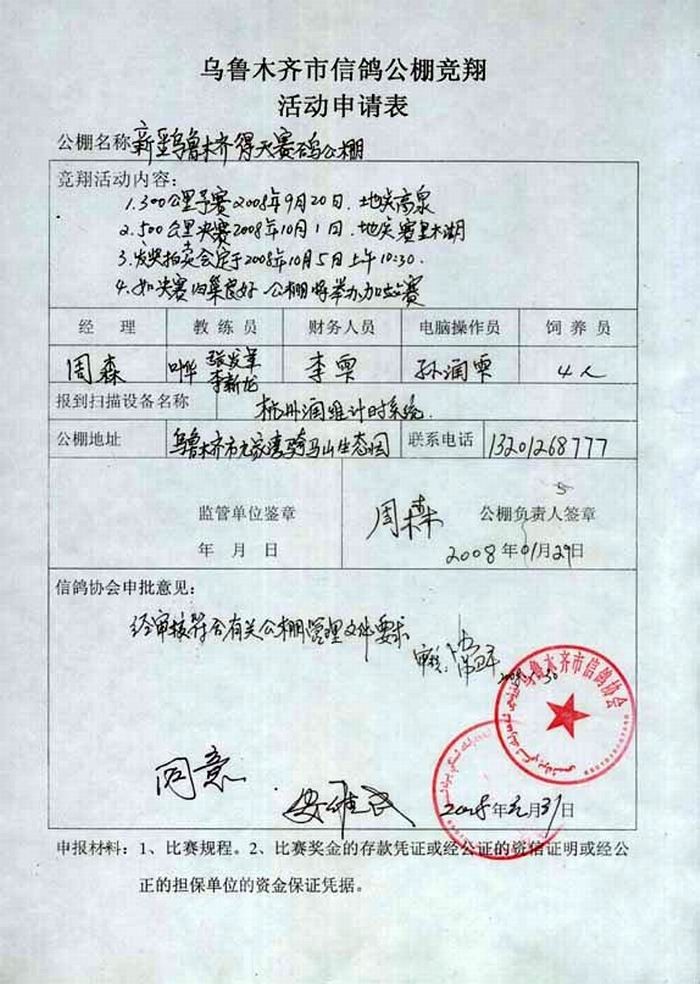 乌鲁木齐市信鸽公棚竞翔
活动申请表
公棚名称 新疆乌鲁木齐得天赛鸽公棚
竞翔活动内容:
1.300公里予赛2008年9月20日.地点高泉
2.500公里决赛2008年10月1日.地点赛里木湖
3.发奖拍卖会定于2008年10月5日上午10:30.
4.如决赛归巢良好 公棚将举办加站赛
经 理 教 练 员 财务人员 电脑操作员 饲 养 员
周森 叶华 张发军 李雯 孙润雯 4人
李新龙
报到扫描设备名称 杭州润维计时系统.
公棚地址 乌鲁木齐市九家湾骑马山生态园 联系电话 13201268777
监管单位鉴章 周森 公棚负责人签章
年 月 日 2008年01月29日
信鸽协会申批意见:
经审核符合有关公棚管理文件要求
审核:
乌鲁木齐市信鸽协会
同意
2008年 月31日
申报材料: 1、比赛规程。2、比赛奖金的存款凭证或经公证的资信证明或经公
正的担保单位的资金保证凭据。